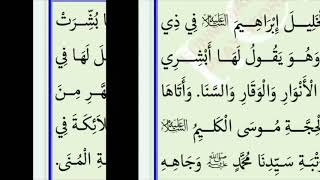 الْخَلِيلَ إِبْرَاهِيمَ عَلَيْهِ السَّلَامُ فِي ذِي
وَهُوَ يَقُولُ لَهَا أَبْشِرِي
الْأَنْوَارِ وَالْوَقَارِ وَالسَّنَا. وَأَتَاهَا
الْحِجَّةِ مُوسَى الْكَلِيمُ عَلَيْهِ السَّلَامُ
رُتْبَةِ سَيِّدِنَا مُحَمَّدٍ ﷺ وَجَاهِهِ
بُشِّرَتْ
لَهَا فِي
مِنَ
فِي
الْمُنَى.